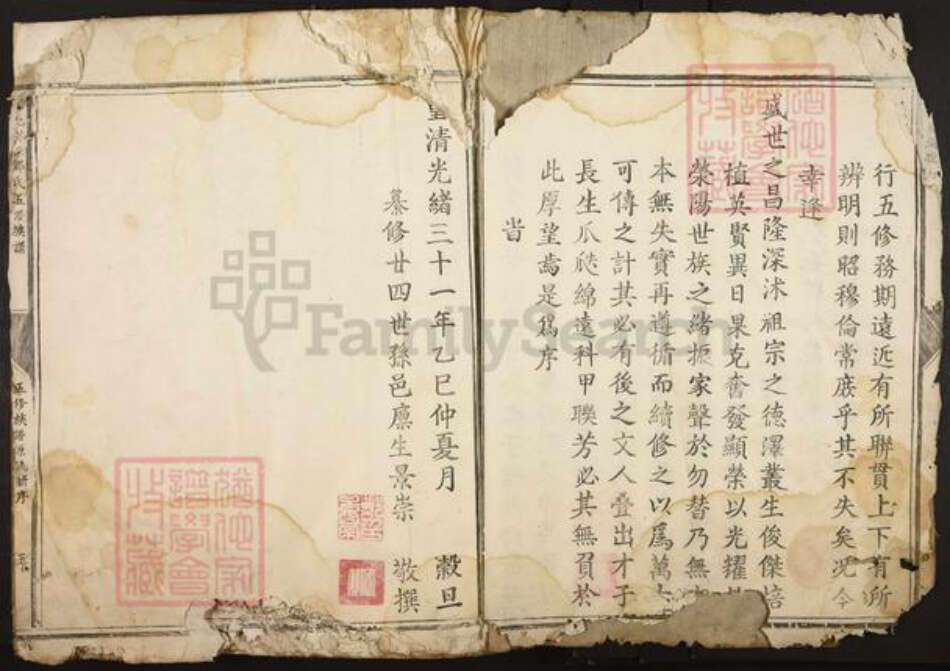 行五修務期遠近有所聯貫上下有所
辨明則昭穆倫常庶乎其不失矣况今
幸逢
盛世之昌隆深沐祖宗之德澤叢生俊傑培
植英賢異日果克奮發顯榮以光耀
滎陽世族之緒振家聲於勿替乃無
本無失實再遵循而續修之以爲萬
可傳之計其必有後之文人叠出才子
長生瓜瓞綿遠科甲聯芳必其無負於
此厚望焉是爲序
旹
皇清光緒三十一年乙巳仲夏月 穀旦
纂修廿四世孫邑廪生景崇 敬撰
氏五修族譜
五修族譜源流序
FamilySearch
譜學會
收藏
譜學會
收藏